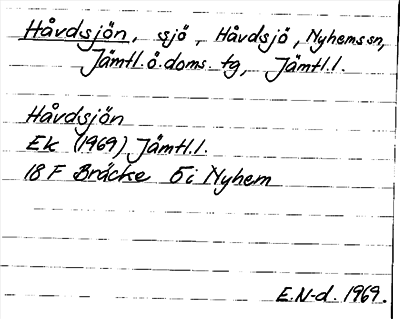 Håvdsjön, sjö, Håvdsjö, Nyhems sn,
Jämtl.ö.doms. tg, Jämtl.l.
Håvdsjön
Ek (1969) Jämtl.l.
18 F Bräcke 5 i Nyhem
E.N-d. 1969.